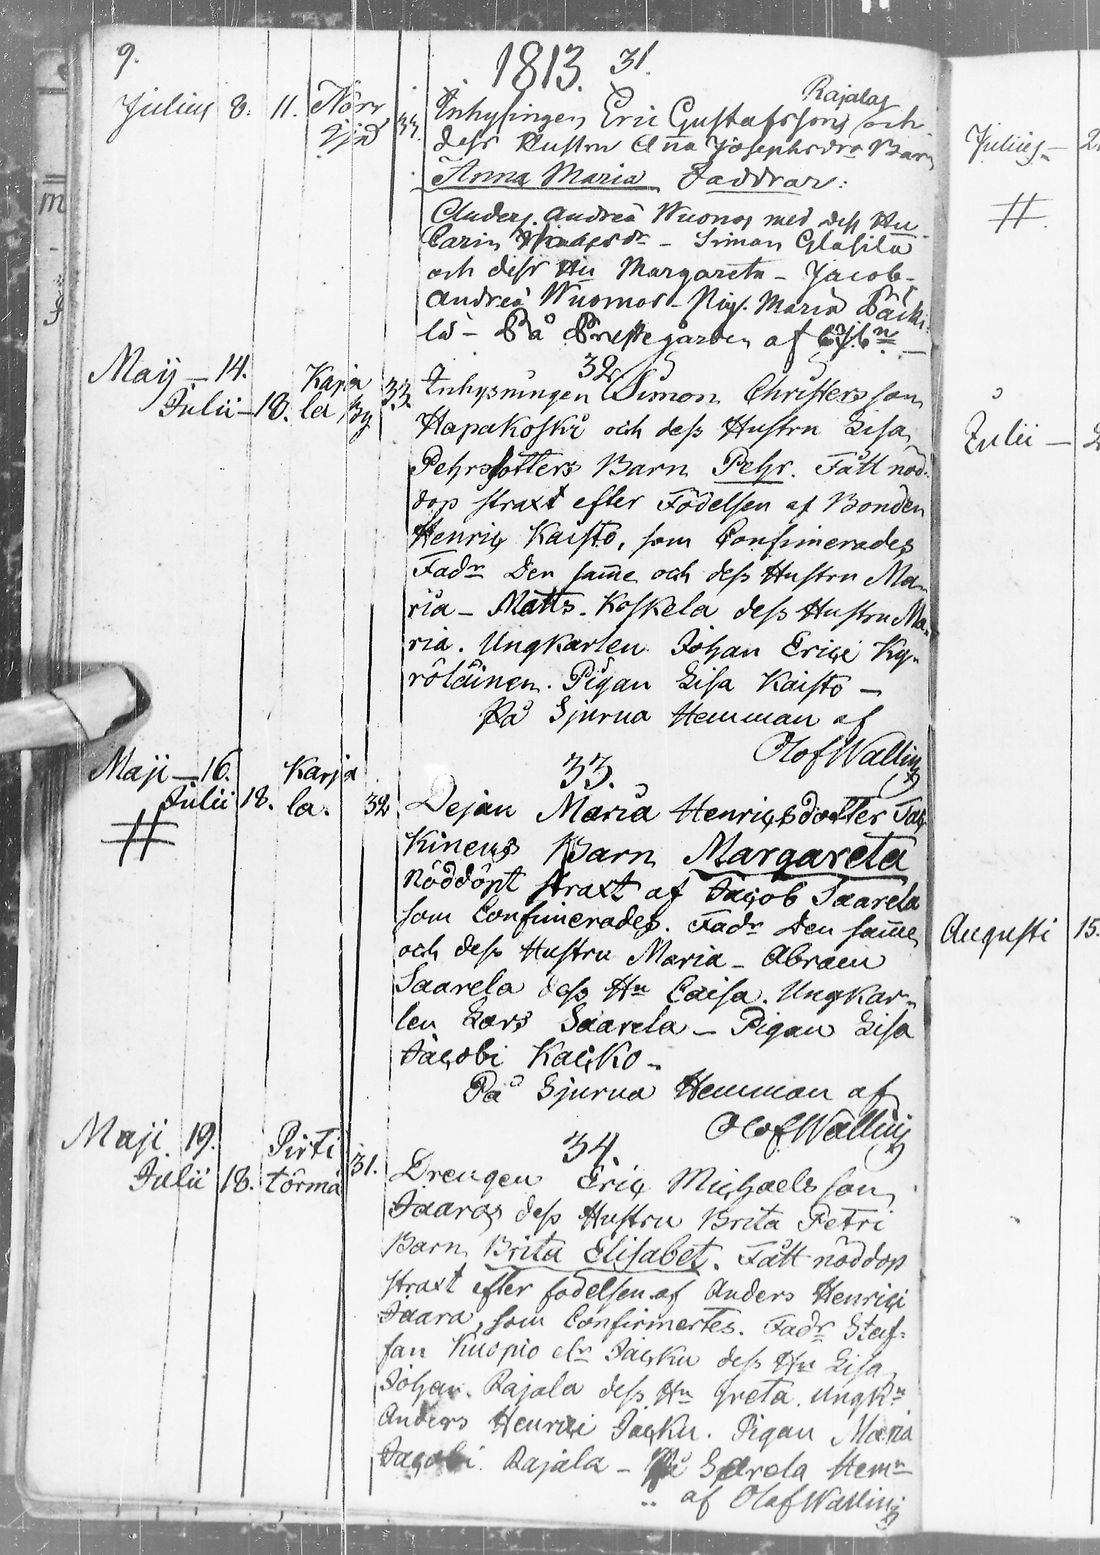 9.
1813. 31.
Rajalas
Julius 8. 11. Norr 33. Inhysingen Eric Gustafssons och
dess Hustru Aña Josephsdr Barn
Anna Maria Faddrar:
Anders Andreæ Wuomos med dess Hu
Carin - Simon Glasila
och dess Hu Margareta - Jacob
Andreæ Wuomos - Pig. Maria
la - På Prestegården af
32.
May - 14. Karja 33. Inhysningen Simon Christersson
Julii - 18. la By Hapakoski och dess Hustru Lisa
Pehrsdotters Barn Pehr. Fått nöd-
dop straxt efter Födelsen af Bonden
Henric Kaisto, som Confirmerades
Fadr Den sam̄e och dess Hustru Ma-
ria - Matts. Koskela dess Hustru Ma-
ria. Ungkarlen Johan Erici Ky-
röläinen. Pigan Lisa Kaisto -
På Sjurua Hemman af
Olof Walling
33.
Maji - 16. Karja
Julii 18. la. 32 Dejan Maria Henricsdotter
# kinens Barn Margareta
Nöddöpt straxt af Jacob Saarela
som Confirmerades. Fadr Den sam̄e
och dess Hustru Maria - Abram
Saarela dess Hu Caisa. Ungkar-
len Lars Saarela - Pigan Lisa
Jacobi Kacko -
På Sjurua Hemman af
Olof Walling
34.
Maji. 19. Pirti 31.
Julii 18. törmä Drengen Eric Michaelsson
Jaaras dess Hustru Brita Petri
Barn Brita Elisabet. Fått nöddop
straxt efter födelsen af Anders Henrici
Jaara, som Confirmertes. Fadr Staf-
fan Kuopio elr Jacku dess Hu Lisa
Johan. Rajala dess Hu Greta. Ungkn
Anders Henrici Jacku. Pigan Maria
Jacobi Rajala - På Saarela Hemn
af Olof Walling
Julius - 2
#
Julii -
Augusti 15.